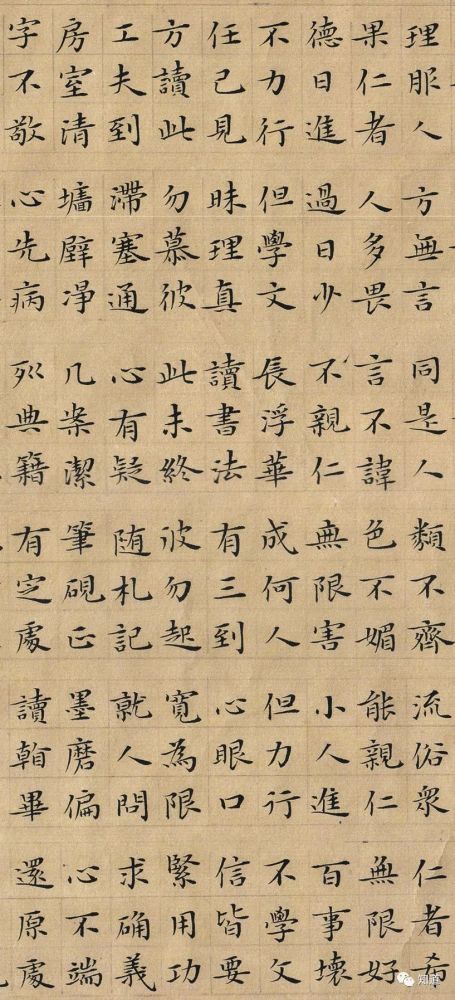 理服人方無言同是人類不齊流俗衆仁者希
果仁者人多畏言不諱色不媚能親仁無限好
德日進過日少不親仁無限害小人進百事壞
不力行但學文長浮華成何人但力行不學文
任己見昧理真讀書法有三到心眼口信皆要
方讀此勿慕彼此未終彼勿起寬為限緊用功
工夫到滯塞通心有疑随札記就人問求确義
房室清墻壁淨几案潔筆硯正墨磨偏心不端
字不敬心先病列典籍有定處讀翰畢還原處